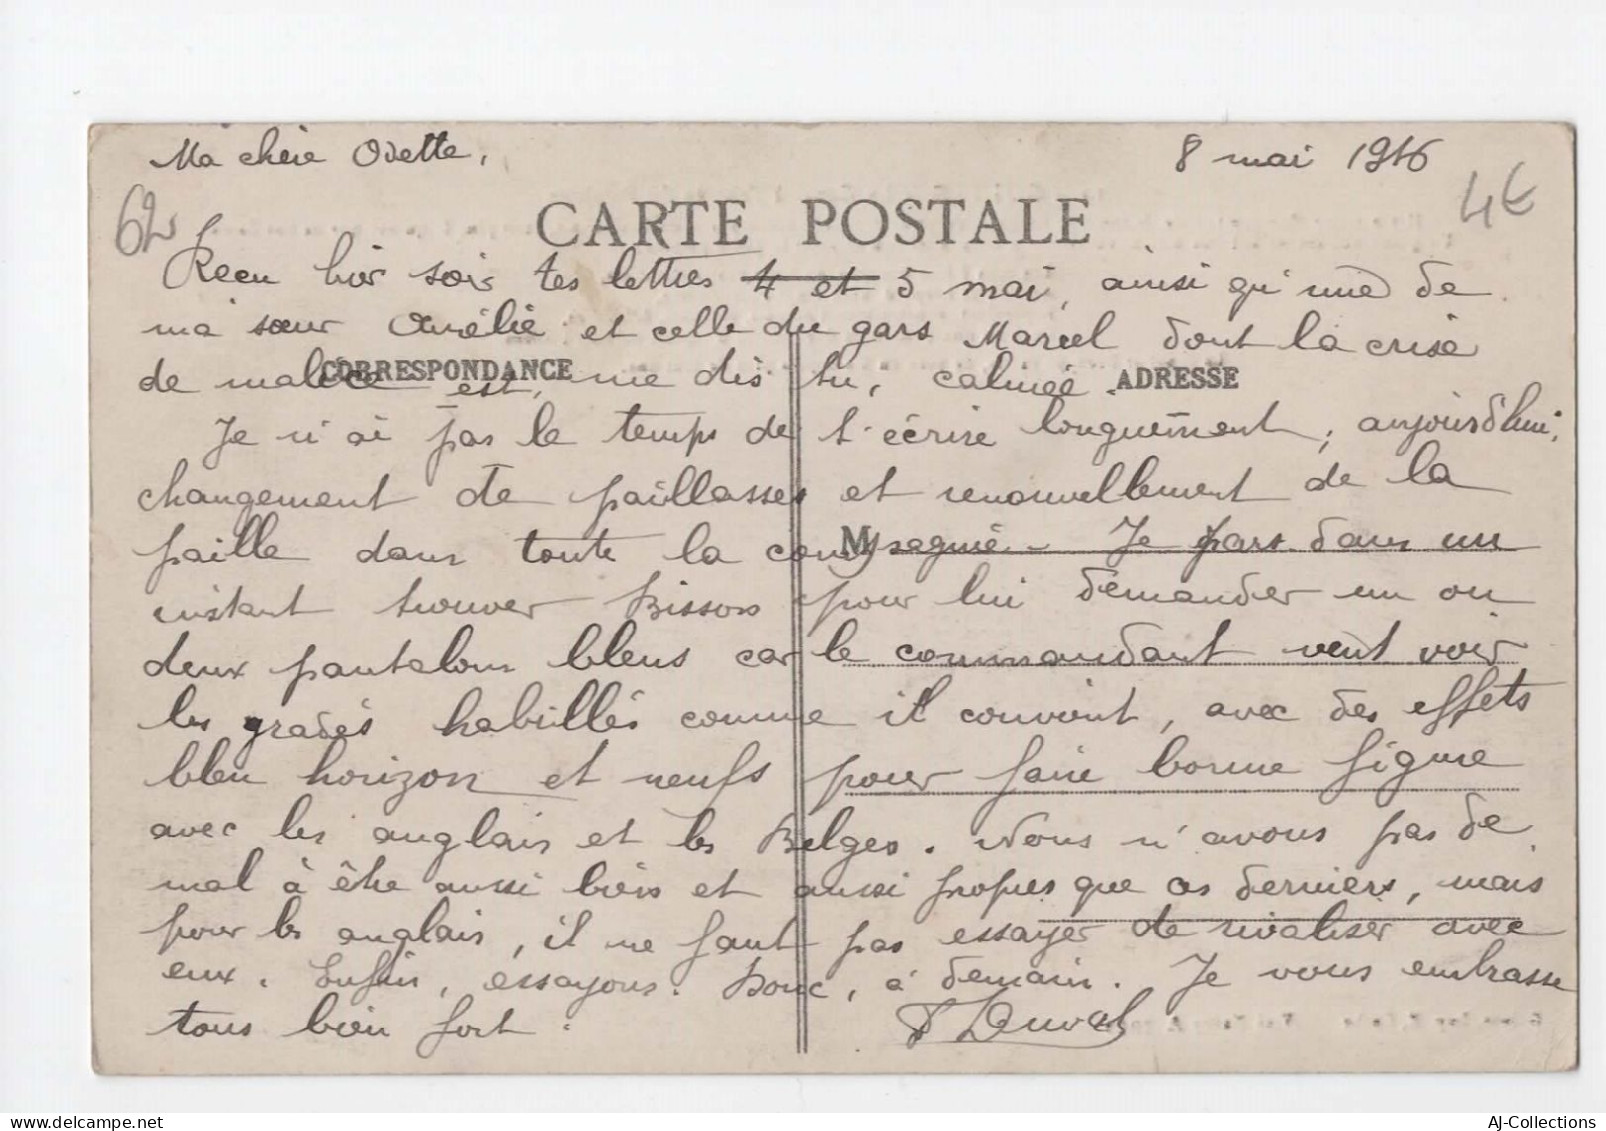 Ma chère Odette,
8 mai 1916
62
4€
CARTE POSTALE
Reçu hier soir tes lettres 4 et 5 mai, ainsi qu'une de
ma sœur Aurélie et celle du gars Marcel dont la crise
CORRESPONDANCE
ADRESSE
de malice est, me dis tu, calmée.
Je n'ai pas le temps de t'écrire longuement, aujourd'hui,
changement de paillasses et renouvellement de la
M
paille dans toute la compagnie. Je pars dans un
instant trouver Bisson pour lui demander un ou
deux pantalons bleus car le commandant veut voir
les gradés habillés comme il convient, avec des effets
bleu horizon et neufs pour faire bonne figure
avec les anglais et les Belges. Nous n'avons pas de
mal à être aussi bien et aussi propres que ces derniers, mais
pour les anglais, il ne faut pas essayer de rivaliser avec
eux. Enfin, essayons. Donc, à demain. Je vous embrasse
tous bien fort.
Duval
AJ-Collections